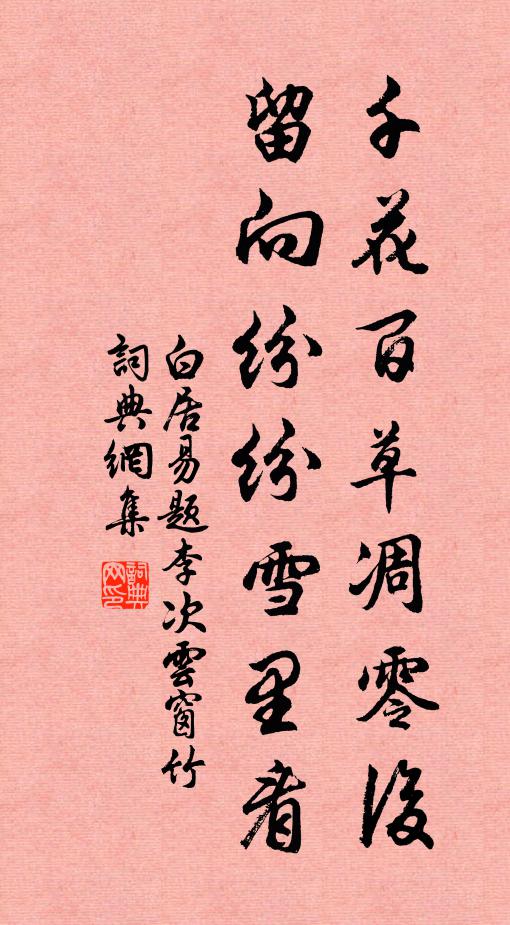 千花百草凋零後
留向紛紛雪里看
白居易題李次雲窗竹
詞典網集
詞典網印